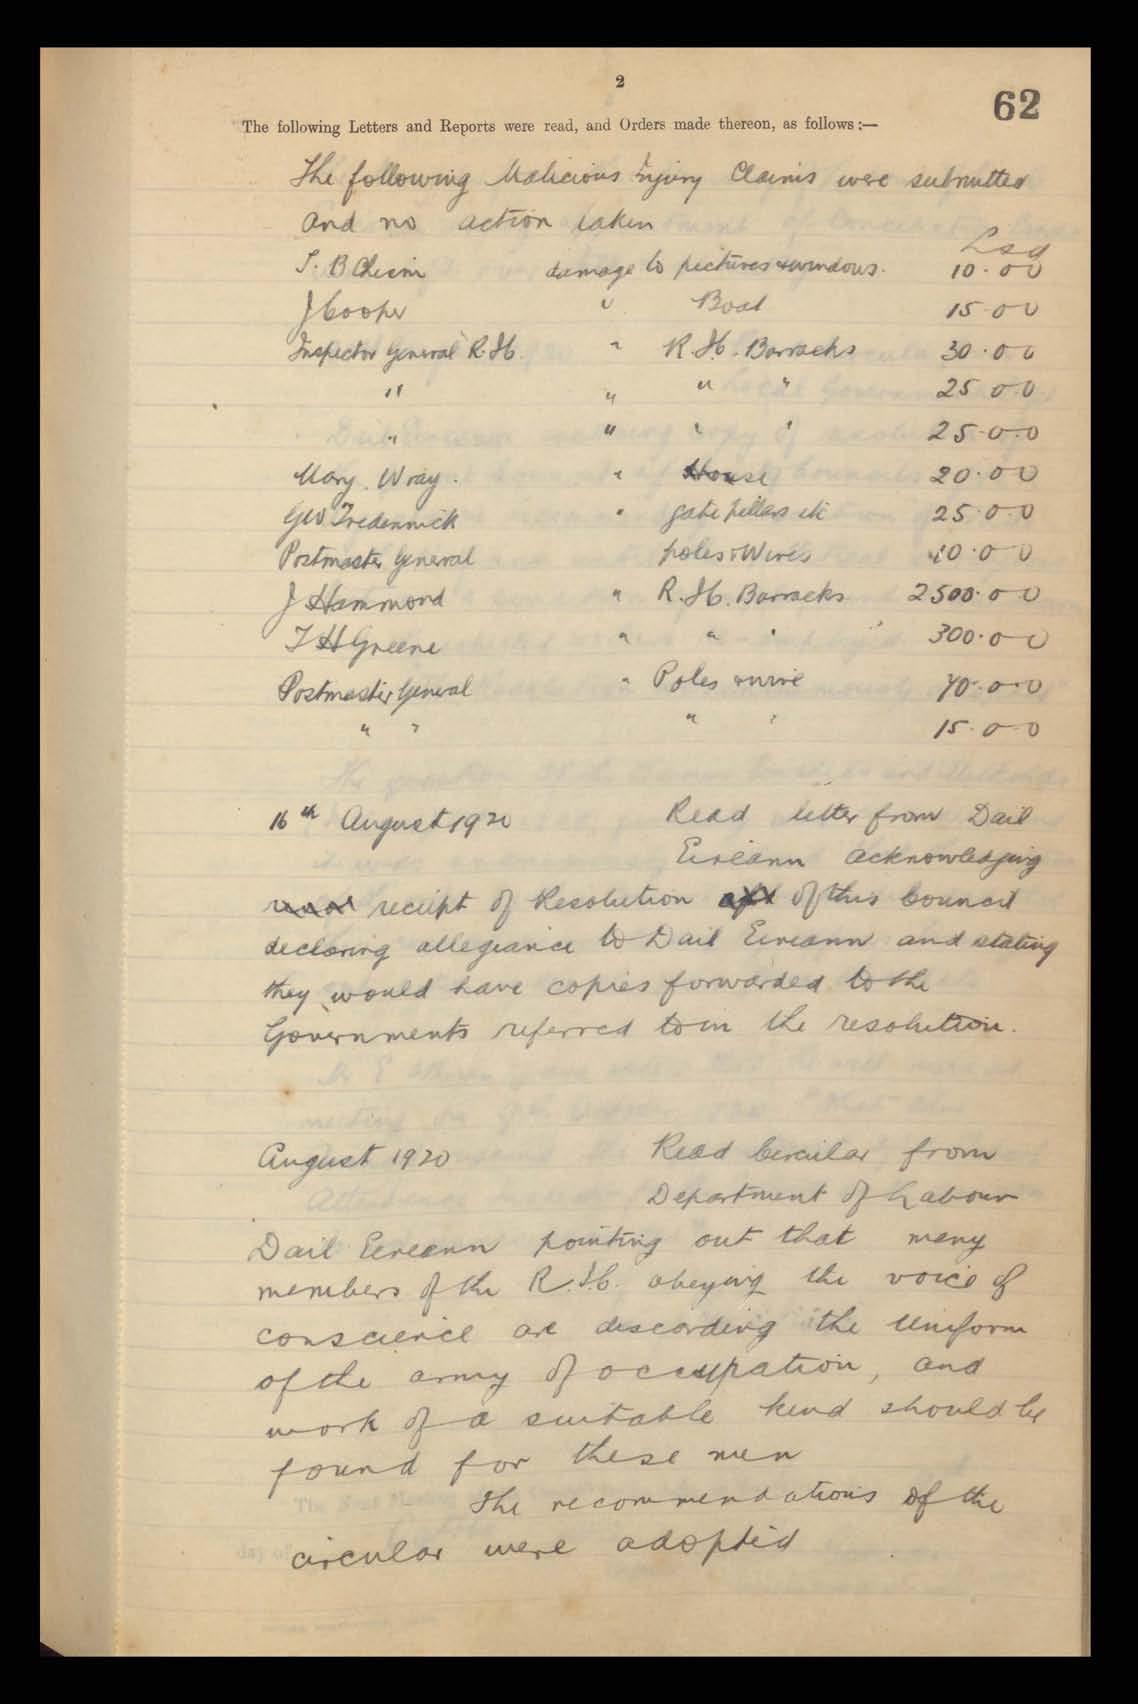 2
62
The following Letters and Reports were read, and Orders made thereon, as follows :—
The following Malicious Injury Claims were submitted
and no action taken
£ s d
damage to pictures & windows. 10 . 0 0
J Cooper " Boat 15 - 0 0
Inspector General R.I.C. " R.I.C. Barracks 30 . 0 0
" " " " 25 0 0
" " " " 25 - 0 - 0
Mary Wray . " House 20 . 0 0
GW Tredennick " gate pillars etc 25 . 0 0
Postmaster General poles & Wires 10 . 0 0
J Hammond " R.I.C. Barracks 2500 . 0 0
T H Greene " " " " 300 . 0 0
Postmaster General " Poles & wire 70 . 0 . 0
" " " " 15 . 0 0
16th August 1920 Read letter from Dail
Eireann acknowledging
receipt of Resolution of this Council
declaring allegiance to Dail Eireann and stating
they would have copies forwarded to the
Governments referred to in the resolution.
August 1920 Read Circular from
Department of Labour
Dail Eireann pointing out that many
members of the R.I.C. obeying the voice of
conscience are discarding the Uniform
of the army of occupation, and
work of a suitable kind should be
found for these men
The recommendations of the
circular were adopted